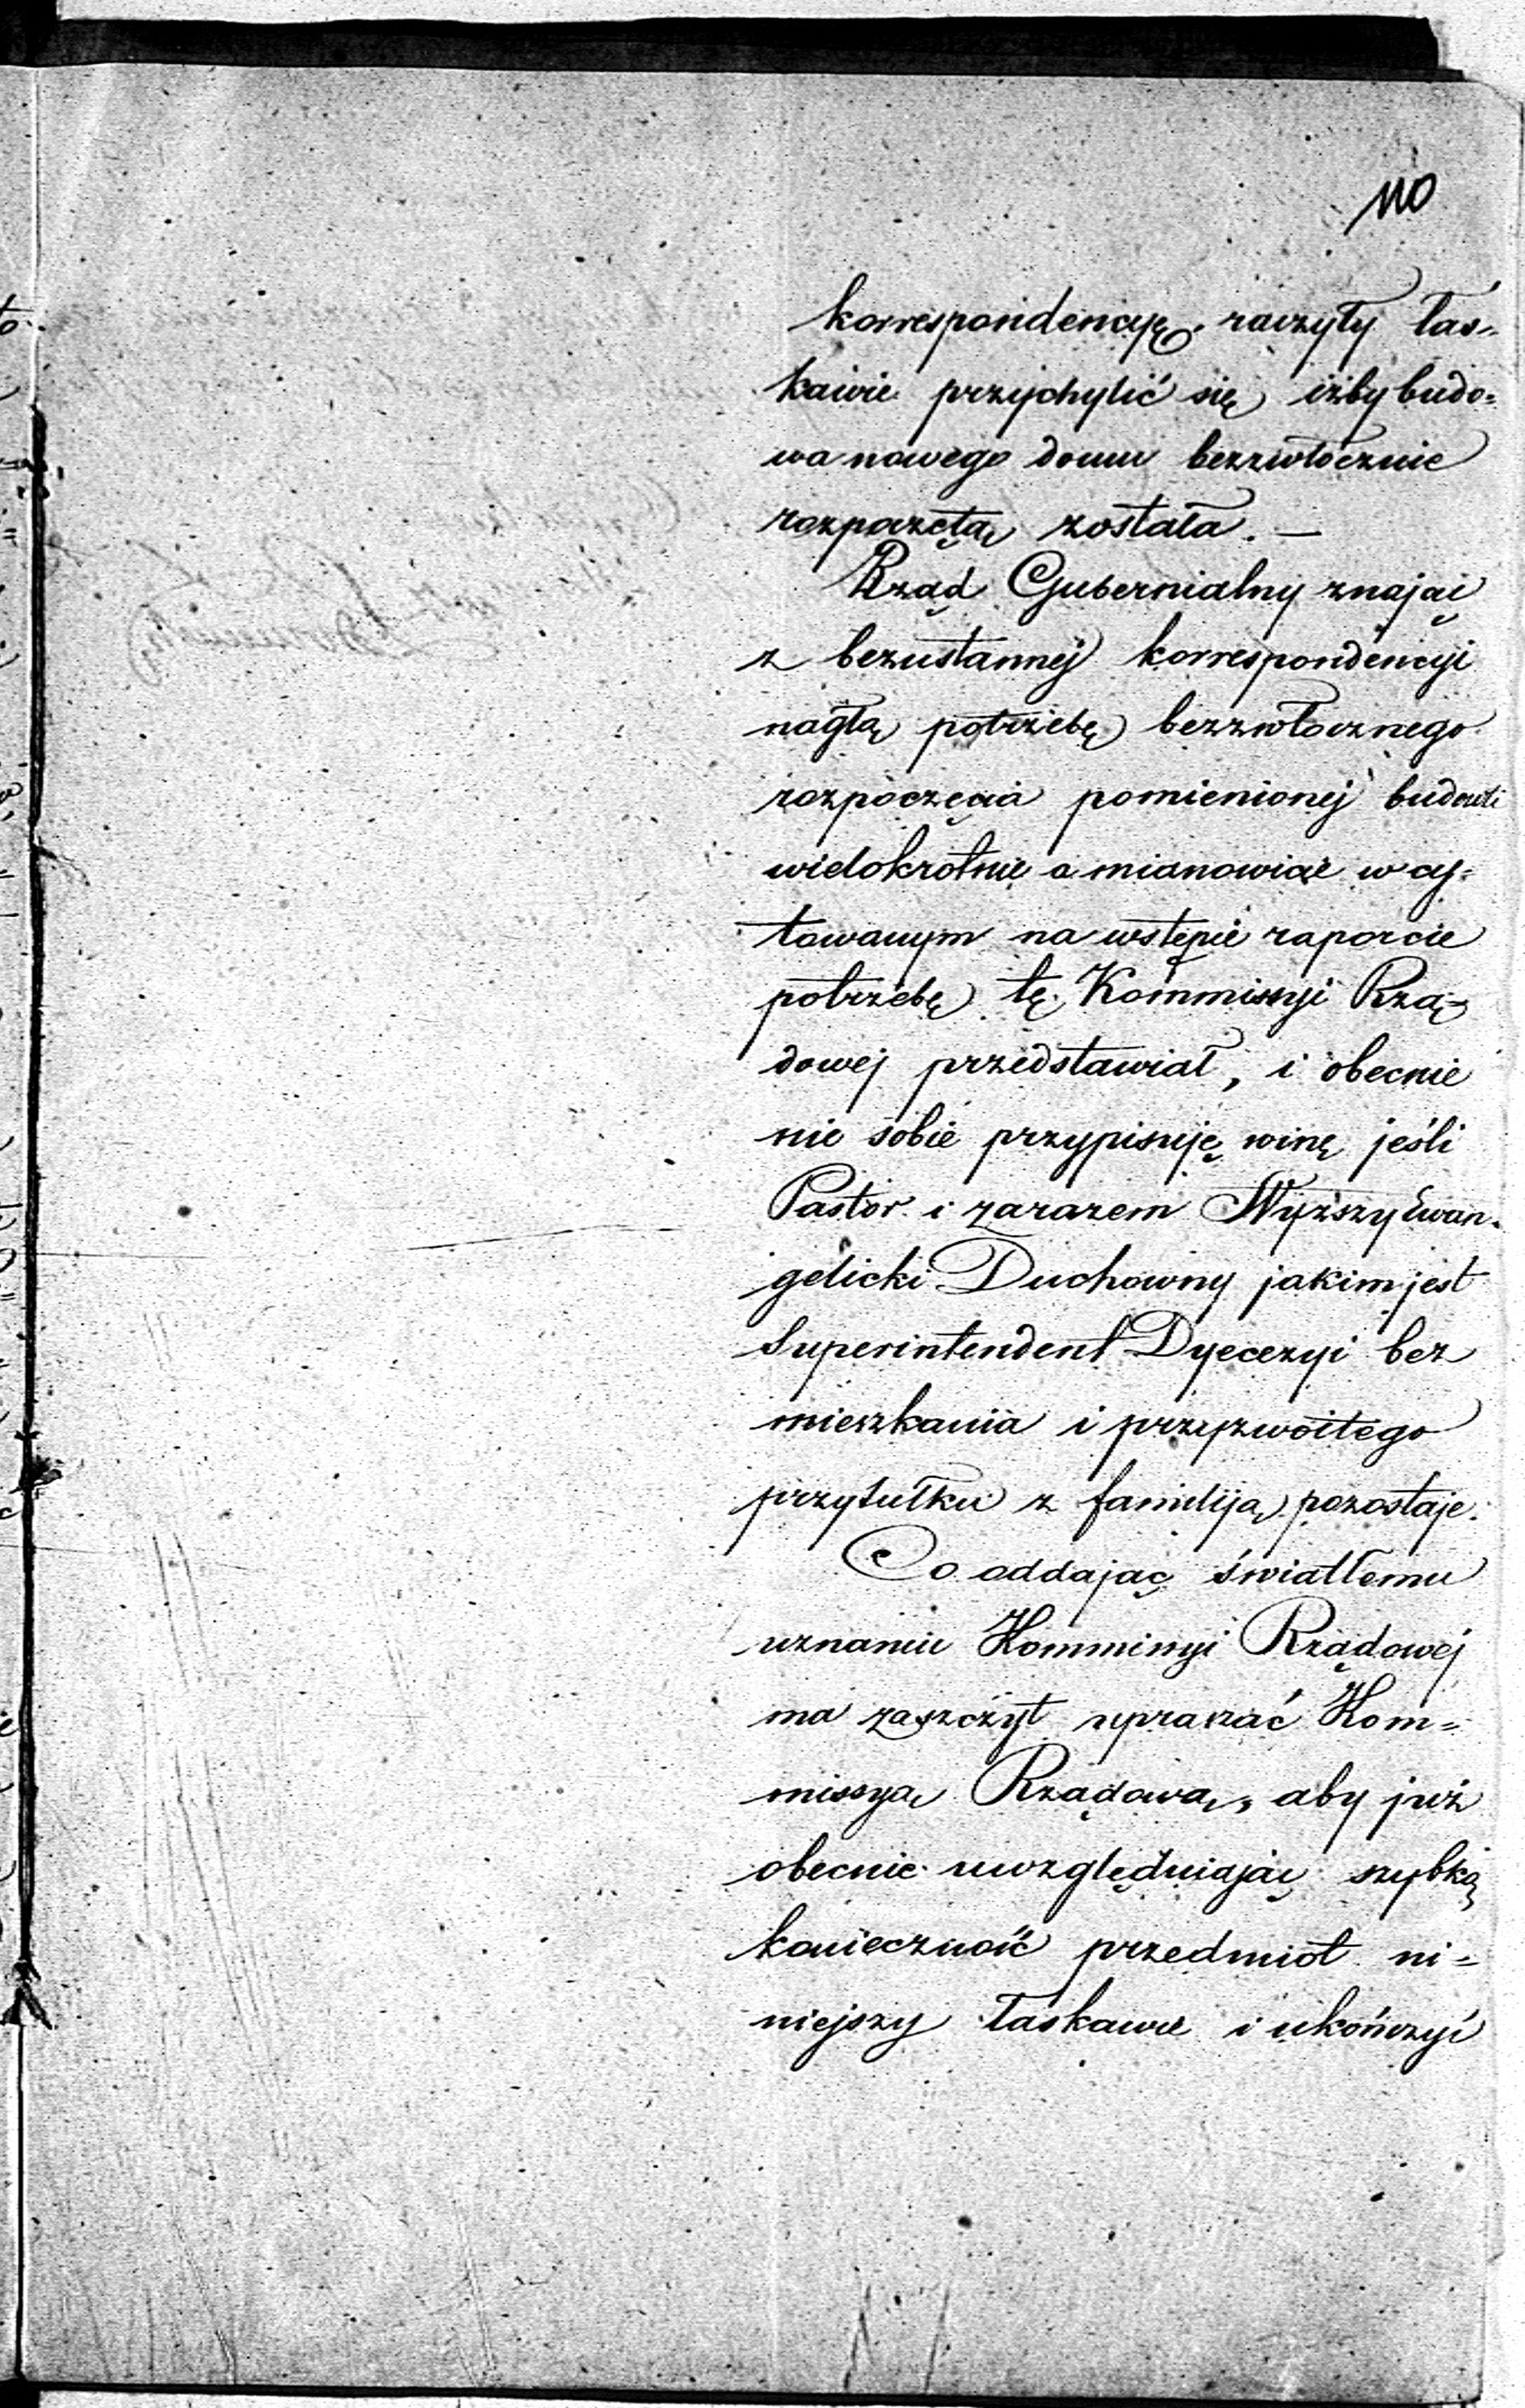 110
korrespondencyę raczyły łas=
kawie przychylić się iżby budo=
wa nowego domu bezzwłocznie
rozpoczętą została. —
Rząd Gubernialny znając
z bezustannej korrespondencyi
nagłą potrzebę bezzwłocznego
rozpoczęcia pomienionej budowli
wielokrotnie a mianowicie w cy=
towanym na wstępie raporcie
potrzebę tę Kommissyi Rzą=
dowej przedstawiał, i obecnie
nie sobie przypisuję winę jeśli
Pastor i zarazem Wyższy Ewan=
gelicki Duchowny jakim jest
Superintendent Dyecezyi bez
mieszkania i przyzwoitego
przytułku z familiją pozostaje.
Co oddając światłemu
uznaniu Kommissyi Rządowej
ma zaszczyt upraszać Kom=
missyą Rządową, aby już
obecnie uwzględniając szybką
konieczność przedmiot ni=
niejszy łaskawie i ukończyć